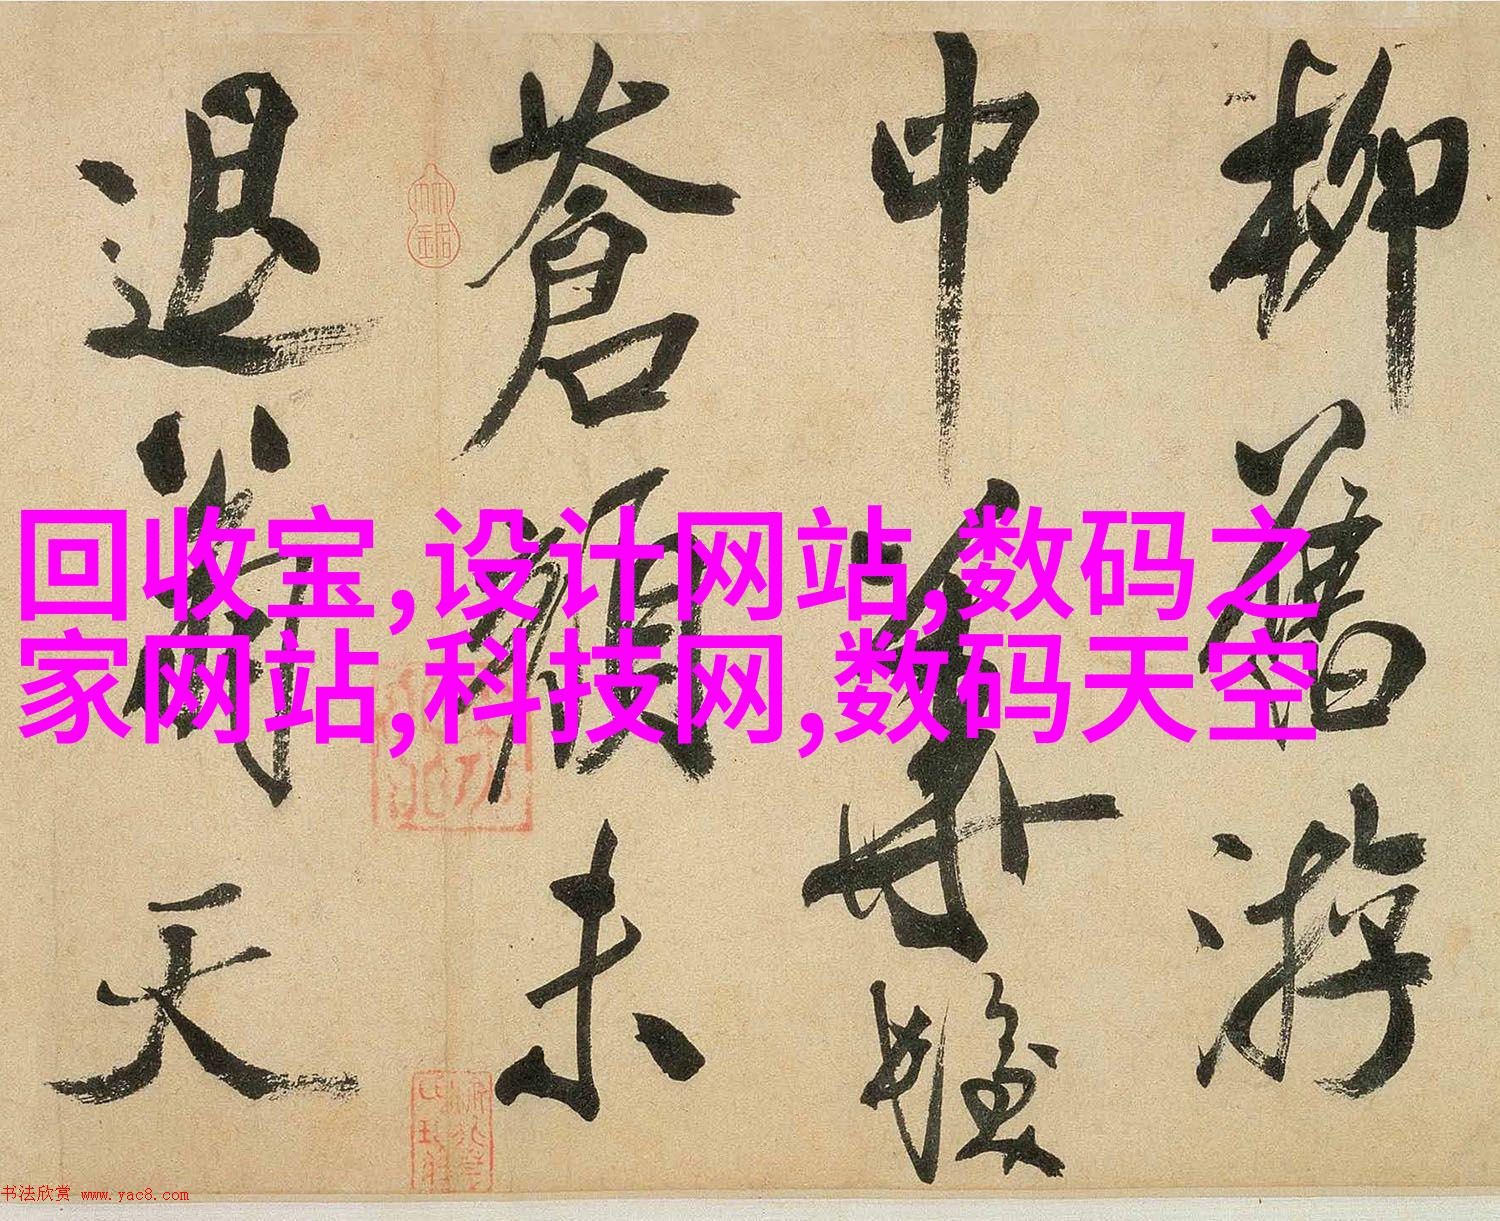 柳舊游
中華發
蒼顏未
退蕭天
回收宝,设计网站,数码之
家网站,科技网,数码天空
书法欣赏 www.yac8.com